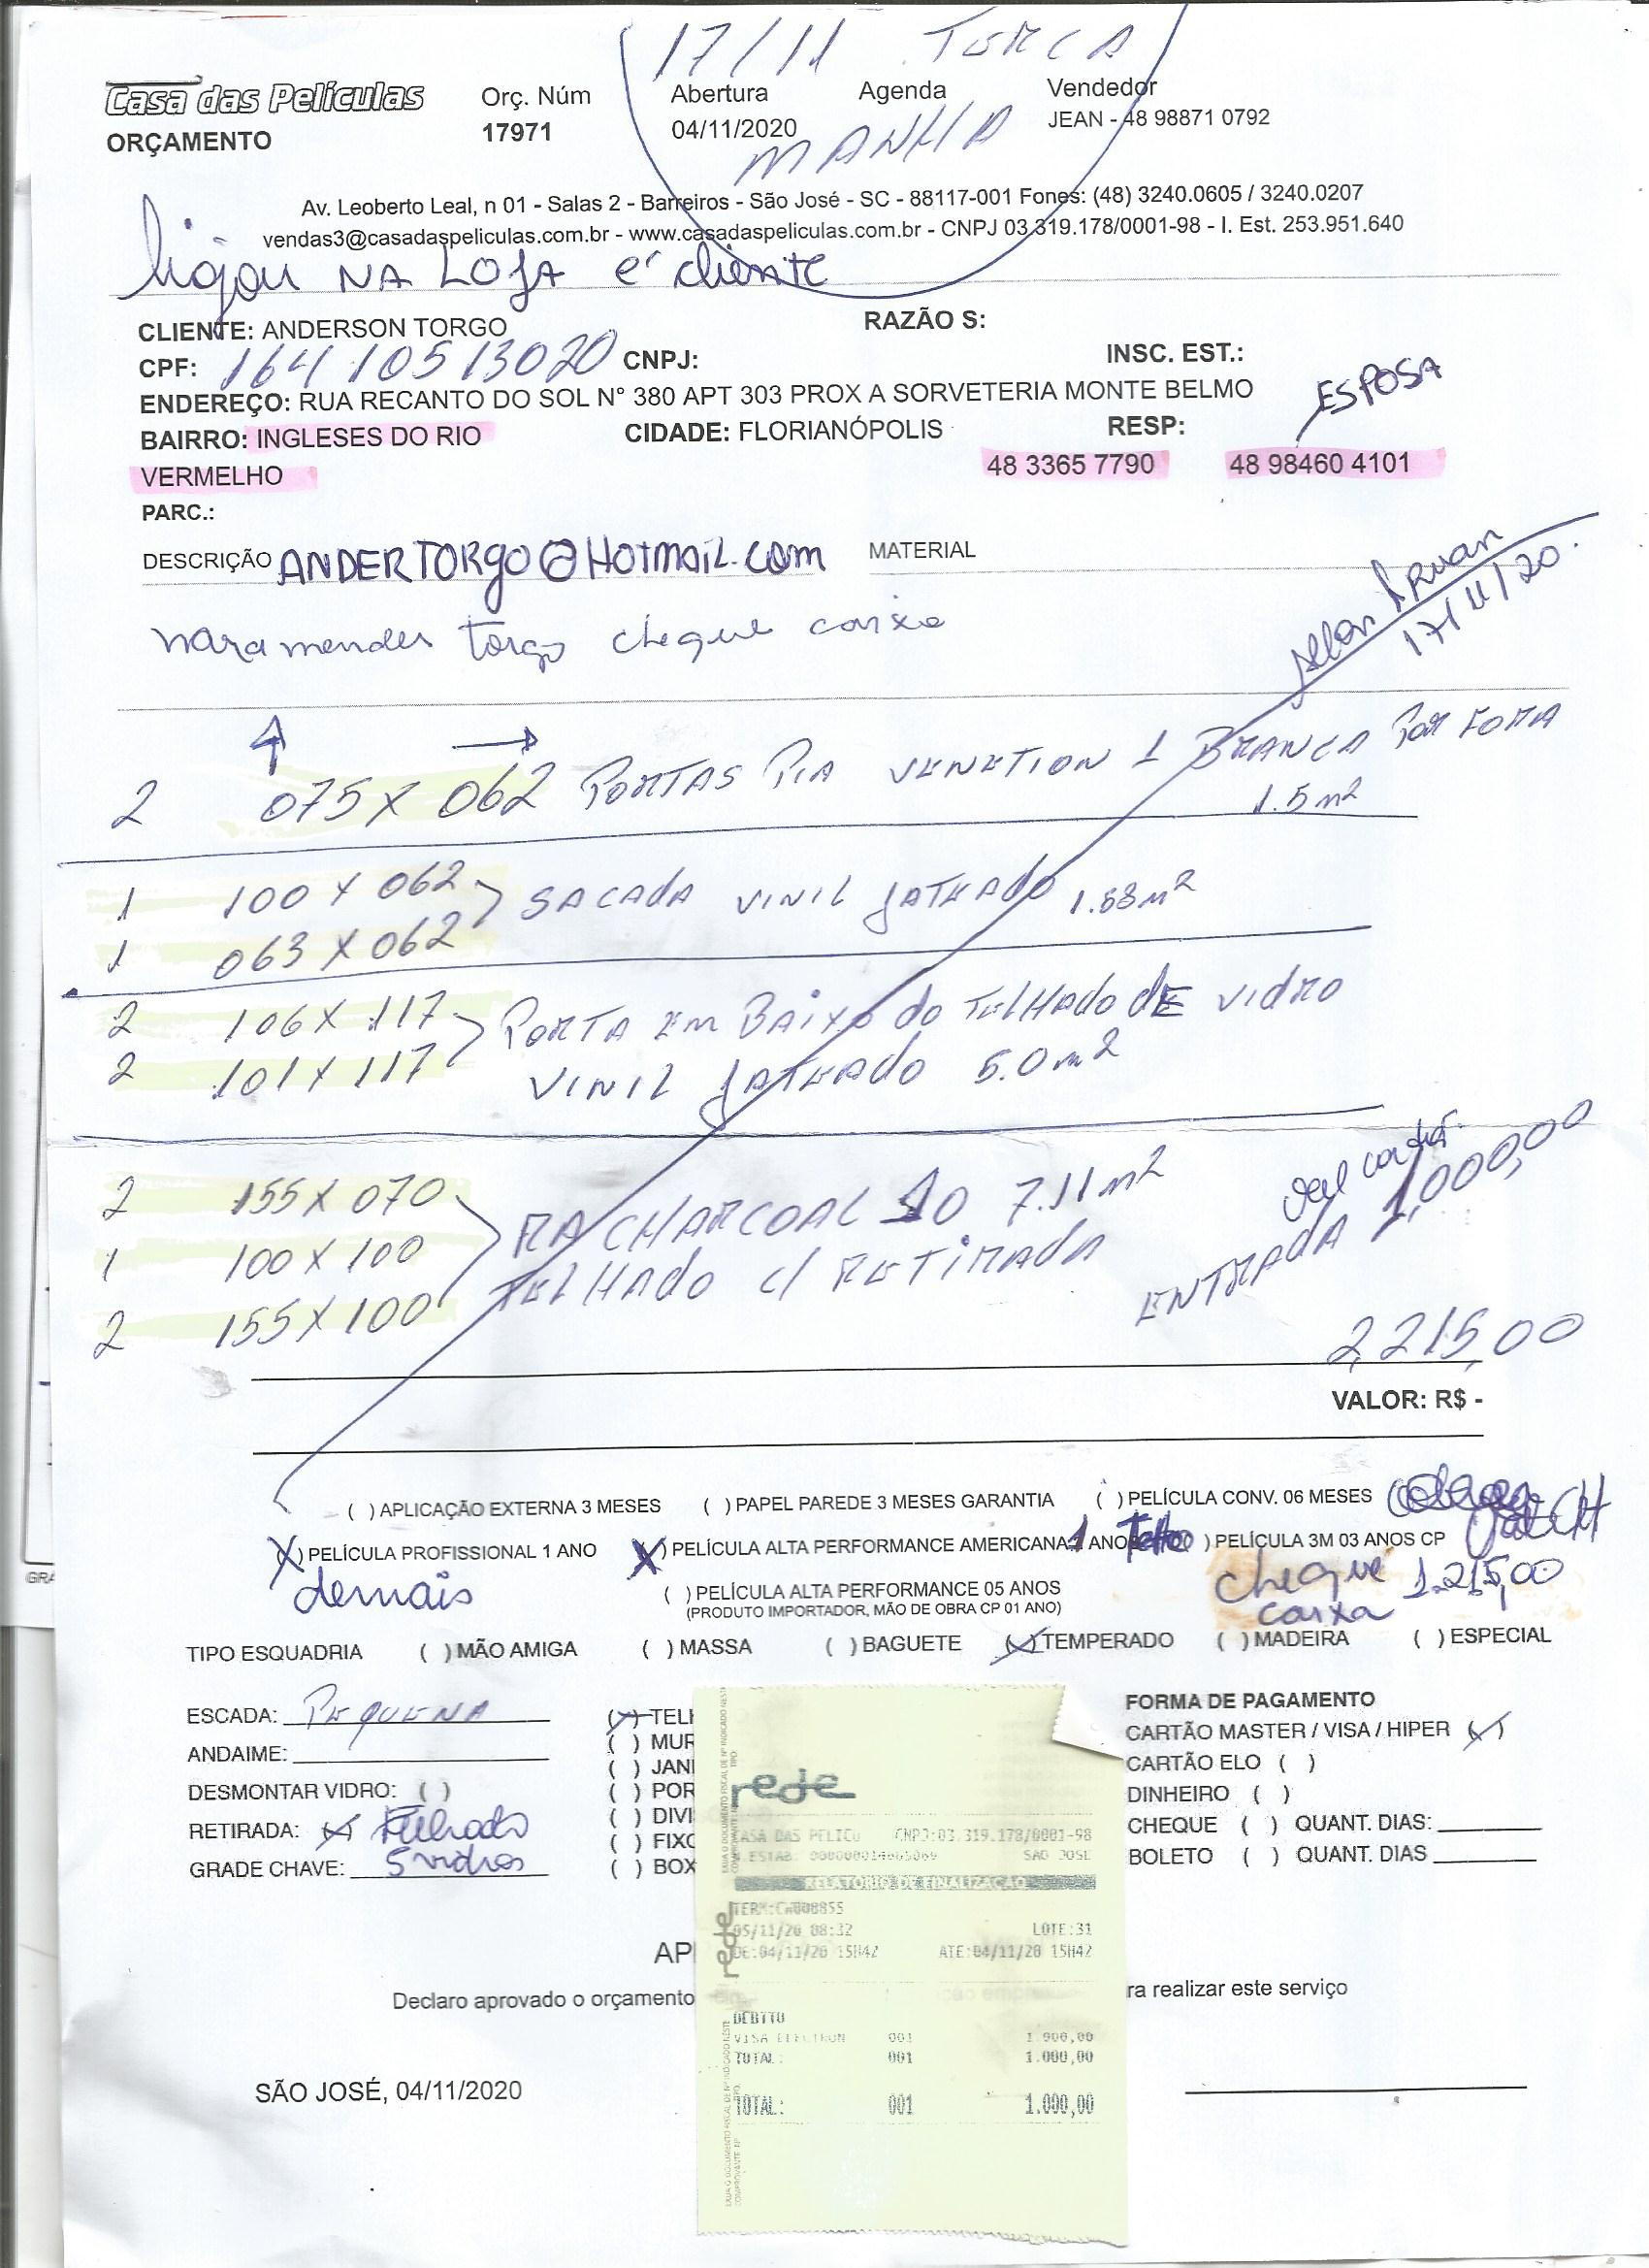 17/11 TERCA
Casa das Películas Orç. Núm Abertura Agenda Vendedor
ORÇAMENTO 17971 04/11/2020 JEAN - 48 98871 0792
MANHA
Av. Leoberto Leal, n 01 - Salas 2 - Barreiros - São José - SC - 88117-001 Fones: (48) 3240.0605 / 3240.0207
vendas3@casadaspeliculas.com.br - www.casadaspeliculas.com.br - CNPJ 03.319.178/0001-98 - I. Est. 253.951.640
ligou NA LOJA é cliente
CLIENTE: ANDERSON TORGO RAZÃO S:
CPF: 164 105 13020 CNPJ: INSC. EST.:
ENDEREÇO: RUA RECANTO DO SOL N° 380 APT 303 PROX A SORVETERIA MONTE BELMO
ESPOSA
BAIRRO: INGLESES DO RIO CIDADE: FLORIANÓPOLIS RESP:
VERMELHO 48 3365 7790 48 98460 4101
PARC.:
DESCRIÇÃO ANDERTORGO@HOTMAIL.COM MATERIAL
nara mendes torgo cheque caixa
17/11/20.
2 075 X 062 PORTAS PIA VENETION 1 BRANCA POR FORA
1.5 m2
1 100 X 062 SACADA VINIL JATEADO 1.68m2
1 063 X 062
2 106 X 117 PORTA EM BAIXO do TELHADO dE VIDRO
2 101 X 117 VINIL JATEADO 5.0m2
2 155 X 070 RA CHARCOAL 10 7.11m2
1 100 X 100 TELHADO c/ RETIRADA
2 155 X 100
ENTRADA 1.000,00
2.215,00
VALOR: R$ -
( ) APLICAÇÃO EXTERNA 3 MESES ( ) PAPEL PAREDE 3 MESES GARANTIA ( ) PELÍCULA CONV. 06 MESES
(X) PELÍCULA PROFISSIONAL 1 ANO (X) PELÍCULA ALTA PERFORMANCE AMERICANA 1 ANO Teto ( ) PELÍCULA 3M 03 ANOS CP
demais ( ) PELÍCULA ALTA PERFORMANCE 05 ANOS cheque 1.215,00
(PRODUTO IMPORTADOR, MÃO DE OBRA CP 01 ANO) caixa
TIPO ESQUADRIA ( ) MÃO AMIGA ( ) MASSA ( ) BAGUETE (X) TEMPERADO ( ) MADEIRA ( ) ESPECIAL
ESCADA: PEQUENA (X) TELH FORMA DE PAGAMENTO
ANDAIME: ( ) MUR CARTÃO MASTER / VISA / HIPER (X)
DESMONTAR VIDRO: ( ) ( ) JANI CARTÃO ELO ( )
RETIRADA: (X) Telhado ( ) POR DINHEIRO ( )
GRADE CHAVE: 5 vidros ( ) DIVI CHEQUE ( ) QUANT. DIAS:
( ) FIXO BOLETO ( ) QUANT. DIAS
( ) BOX
rede
CASA DAS PELICU CNPJ:03.319.178/0001-98
SAO JOSE
RELATORIO DE FINALIZAÇAO
05/11/20 08:32 LOTE:31
DE:04/11/20 15H42 ATE:04/11/20 15H42
DEBITO
VISA ELECTRON 001 1.000,00
TOTAL: 001 1.000,00
TOTAL: 001 1.000,00
AP
Declaro aprovado o orçamento ra realizar este serviço
SÃO JOSÉ, 04/11/2020